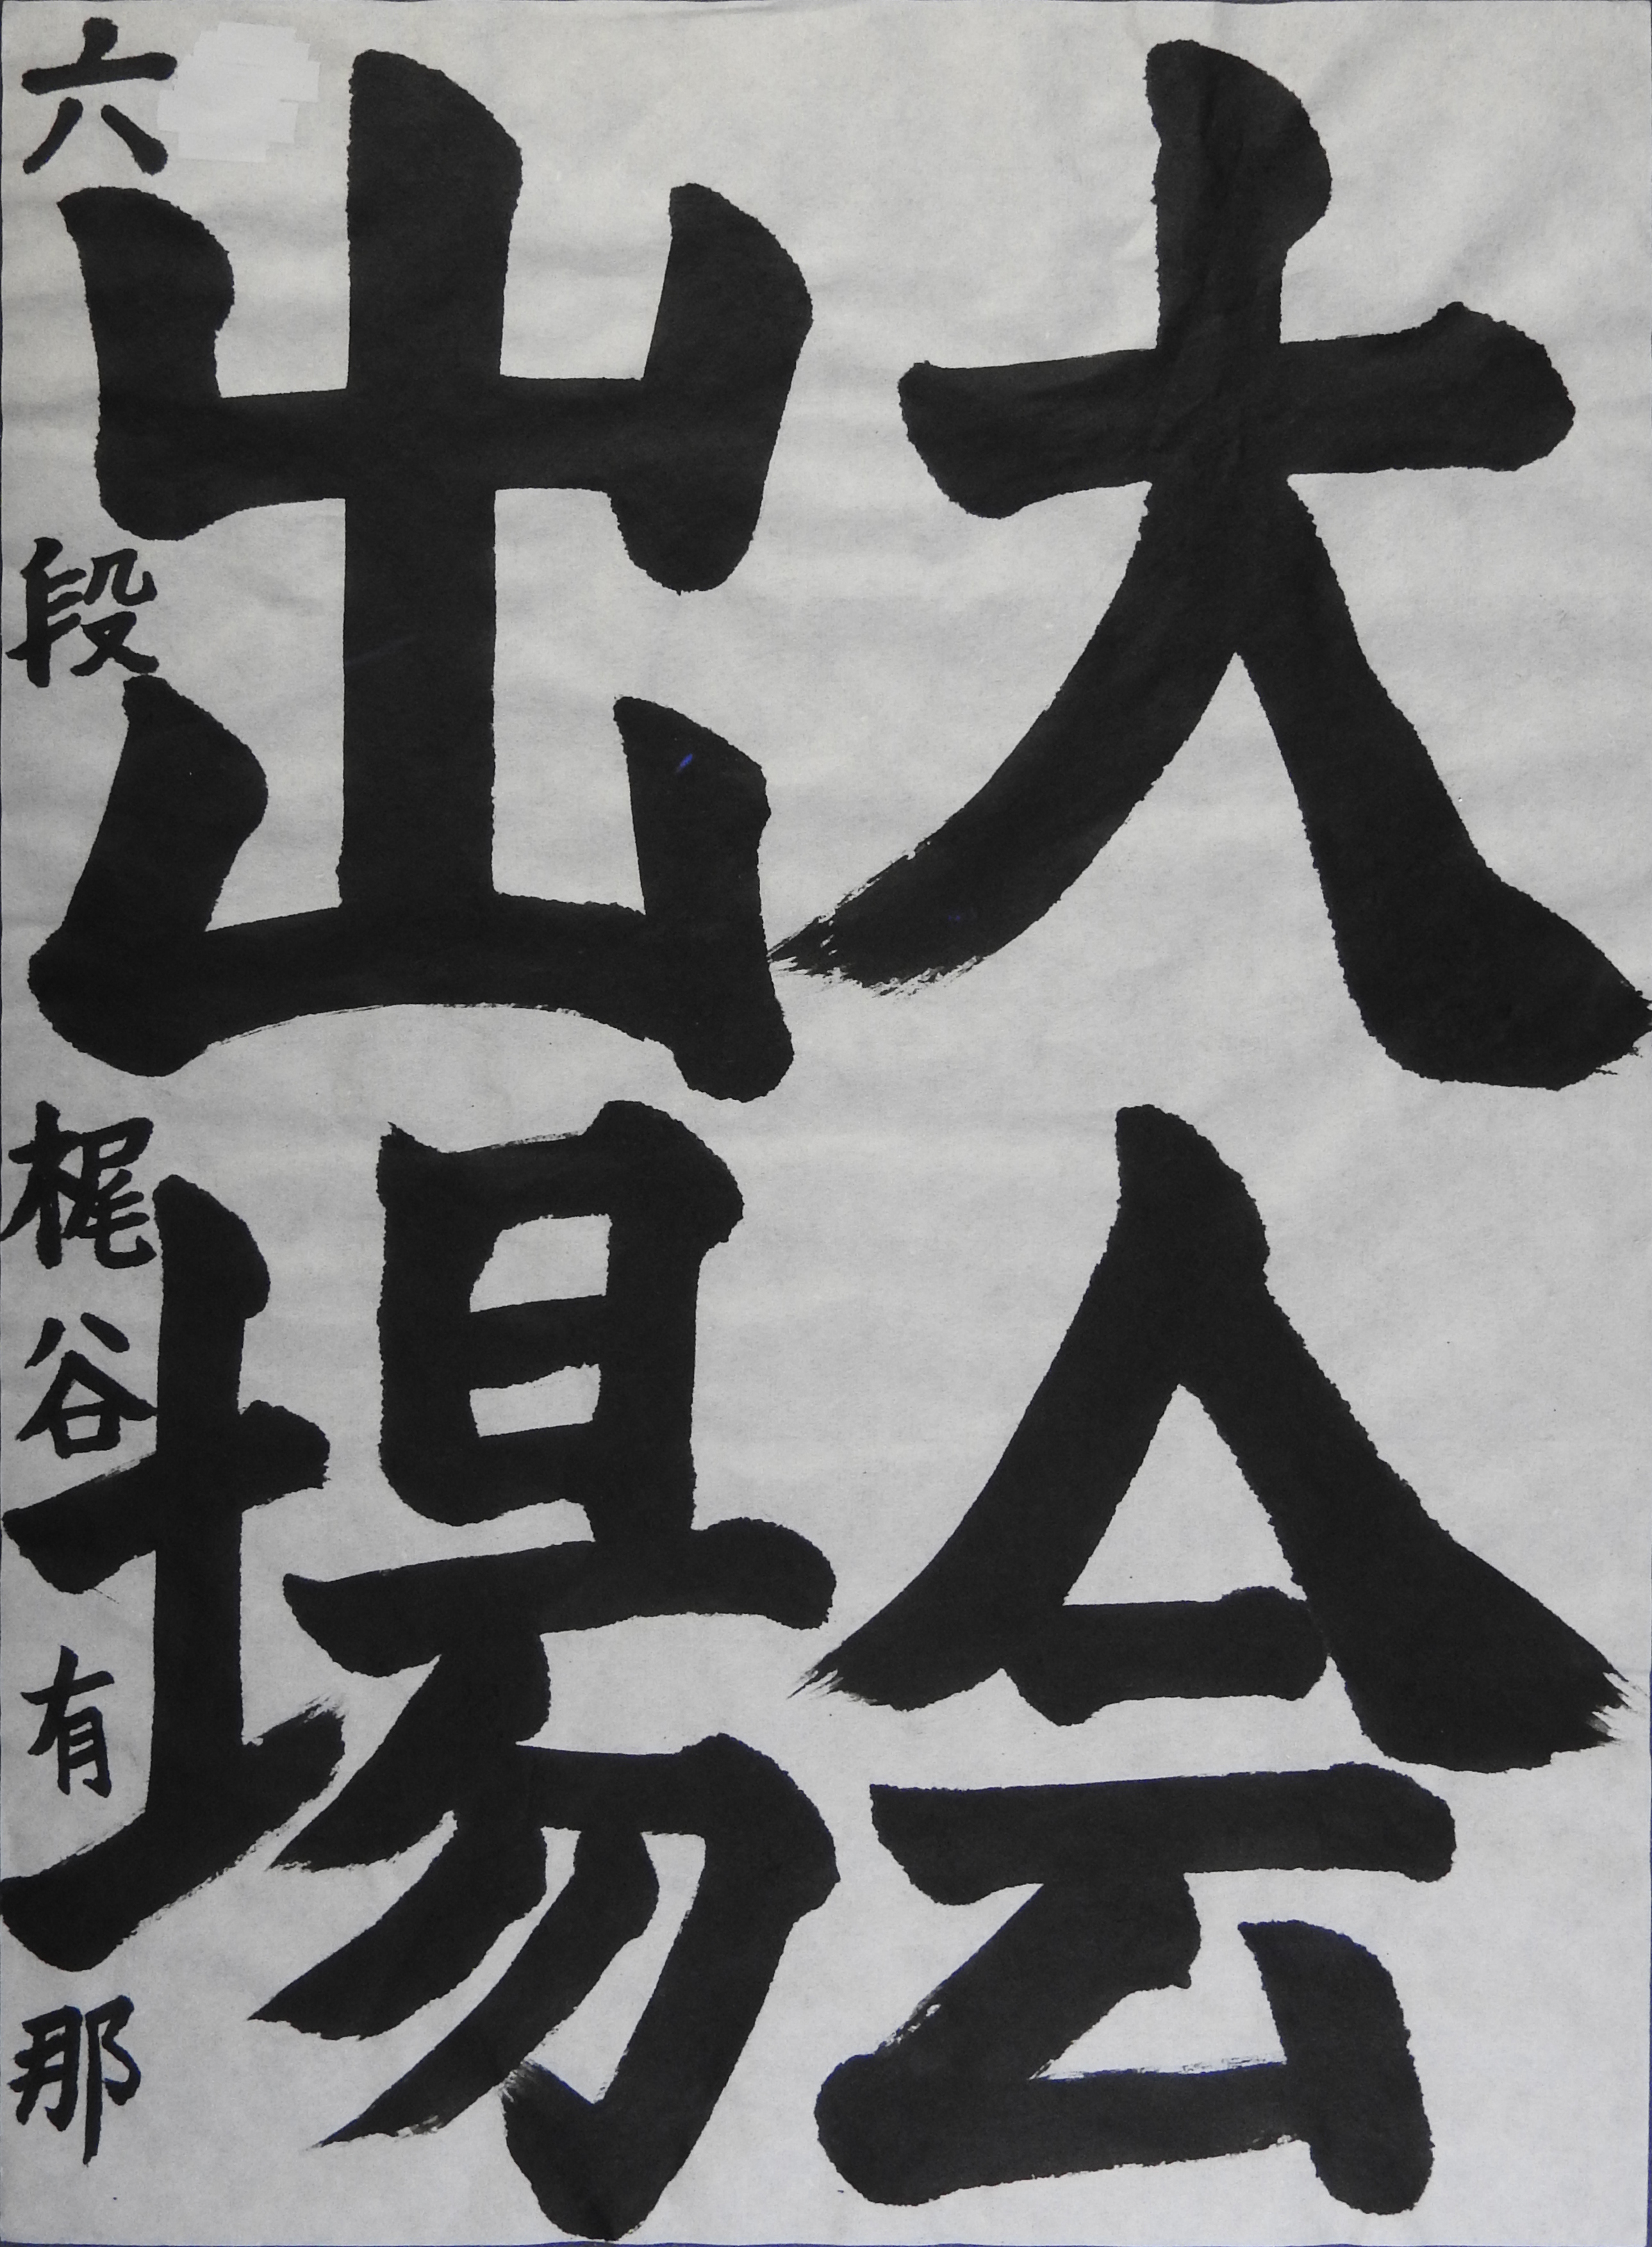 大会
出場
六段 梶谷有那